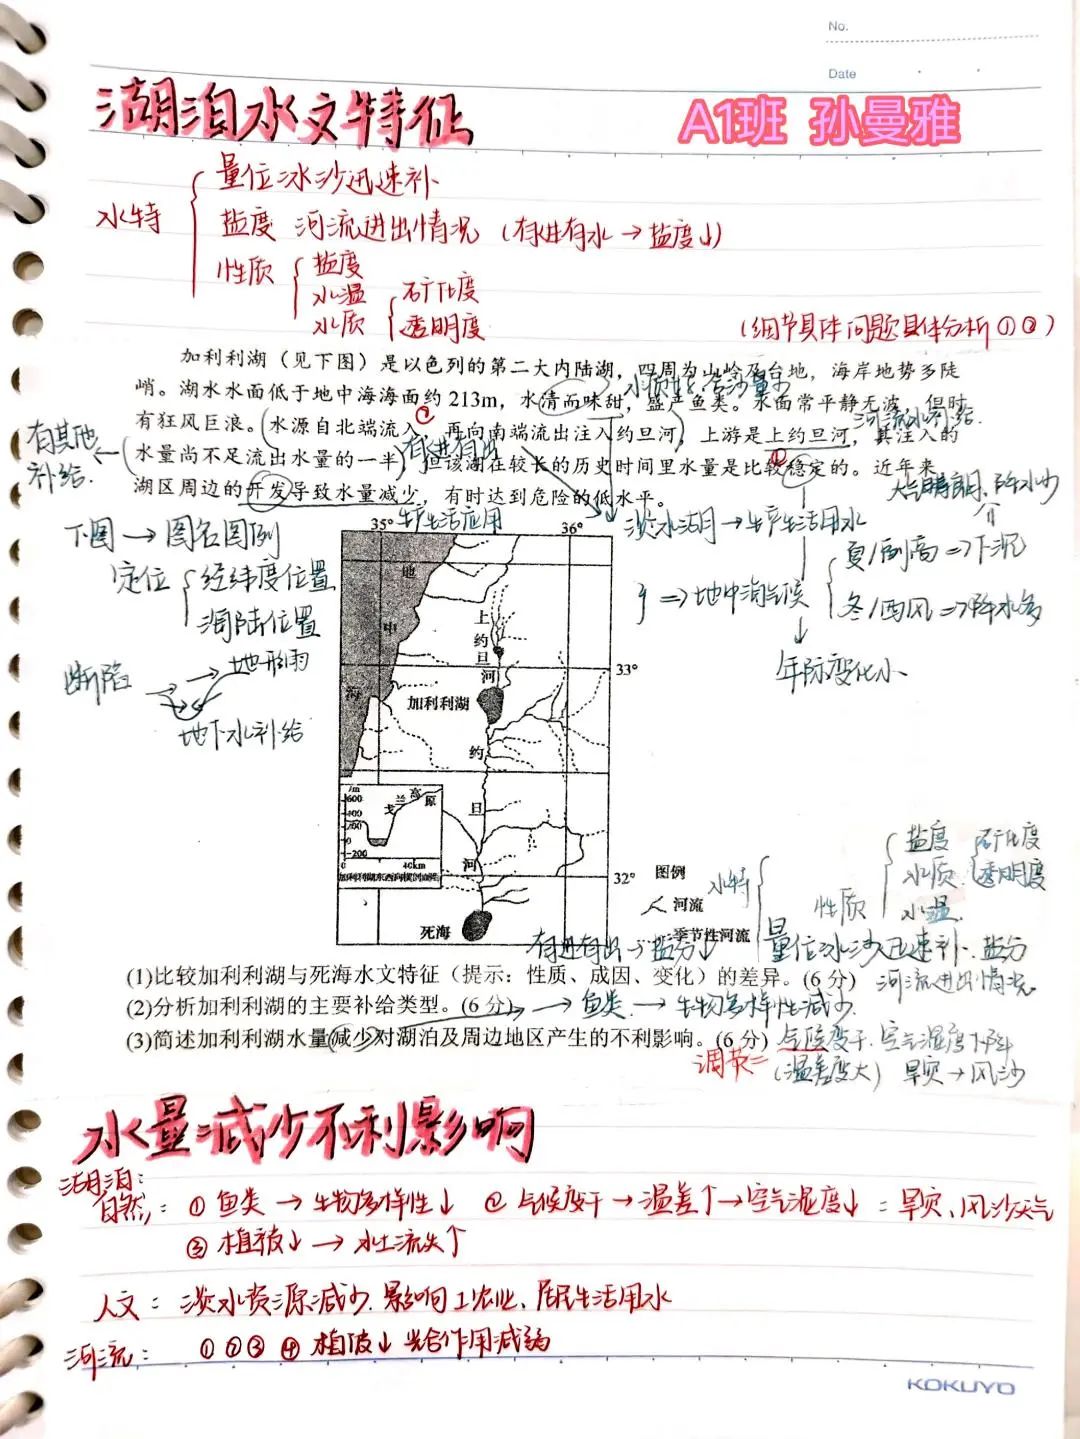 No.
Date
湖泊水文特征
A1班 孙曼雅
水特
量位冰沙汛速补
盐度 河流进出情况 (有进有水→盐度↓)
性质
盐度
水温
水质
矿化度
透明度
(细节具体问题具体分析①②)
加利利湖（见下图）是以色列的第二大内陆湖，四周为山岭及台地，海岸地势多陡
峭。湖水水面低于地中海海面约213m，水清而味甜，盛产鱼类。水面常平静无波，但时
有狂风巨浪。水源自北端流入，再向南端流出注入约旦河，上游是上约旦河，其注入的
水量尚不足流出水量的一半，但该湖在较长的历史时间里水量是比较稳定的。近年来
湖区周边的开发导致水量减少，有时达到危险的低水平。
②
①
河流水补给.
有其他
补给.
有进有出
生产生活应用
淡水湖→生产生活用水
大气晴朗、降水少
夏/副高⇒下沉
⇒地中海气候
冬/西风⇒降水多
年际变化小
下图→图名图例
定位
经纬度位置
海陆位置
断陷
地形雨
地下水补给
35°
36°
地
中
海
上
约
旦
河
33°
加利利湖
约
旦
河
/m
600
400
200
0
-200
戈兰高原
0
40km
加利利湖东西向横剖面图
32°
死海
图例
河流
季节性河流
水特
性质
盐度
水质
水温.
矿化度
透明度
量位冰沙汛速补、盐分
河流进出情况
有进有出→盐分↓
(1)比较加利利湖与死海水文特征（提示：性质、成因、变化）的差异。(6分)
(2)分析加利利湖的主要补给类型。(6分)
→鱼类→生物多样性减少.
(3)简述加利利湖水量减少对湖泊及周边地区产生的不利影响。(6分)
气候变干.空气湿度下降
调节=
(温差变大) 旱灾→风沙
水量减少不利影响
湖泊:
自然: ①鱼类→生物多样性↓ ②气候变干→温差↑→空气湿度↓=旱灾、风沙天气
③植被↓→水土流失↑
人文: 淡水资源减少.影响工农业、居民生活用水
河流: ①②③④植被↓光合作用减弱
KOKUYO